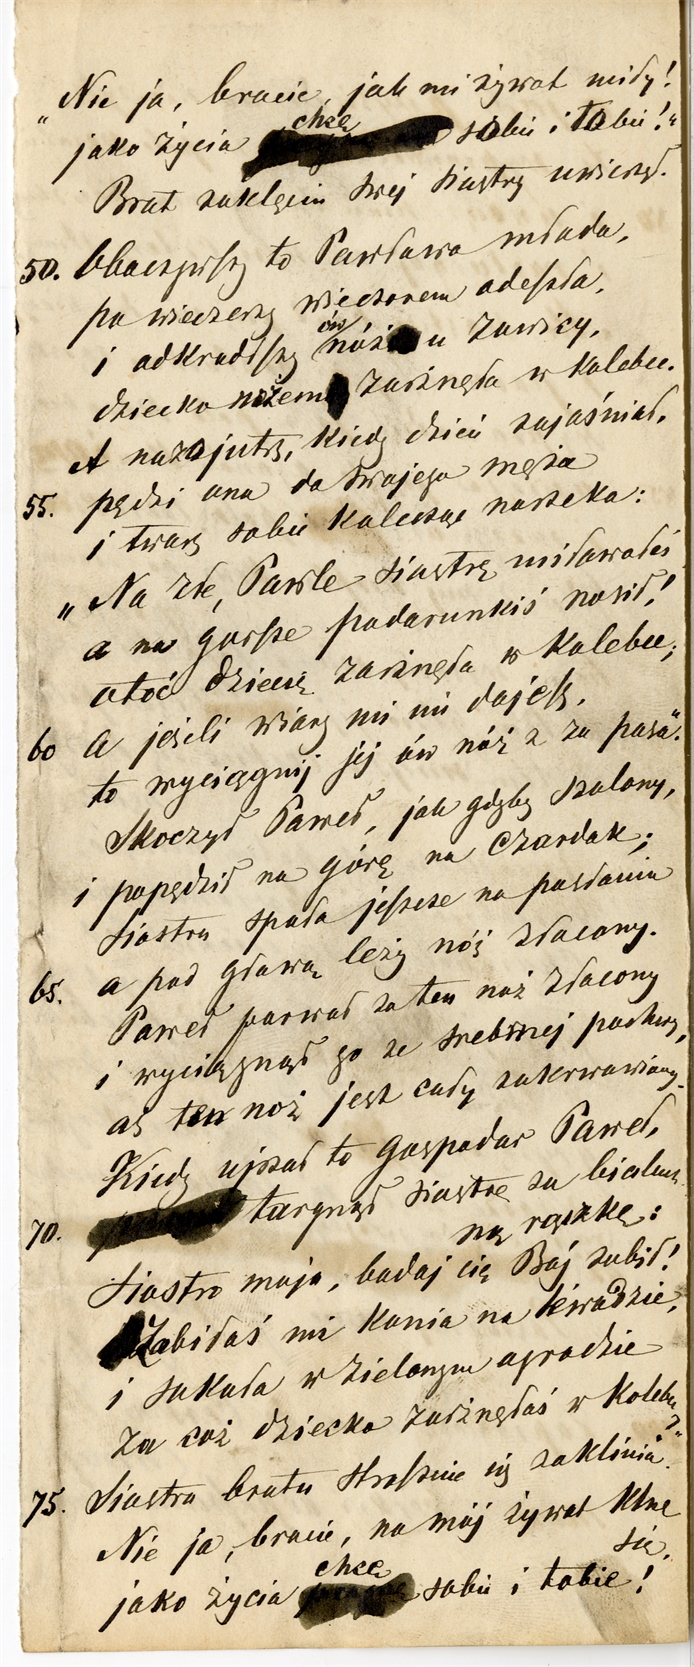 „Nie ja, bracie, jak mi żywot miły!
chcę
jako życia sobie i tobie!"
Brat zaklęciu swej siostry uwierzył.
50. Obaczywszy to Pawłowa młoda,
po wieczerzy wieczorem odeszła,
ów
i odkradłszy nóż u zawicy,
dziecko nożem zarżnęła w kolebce.
A nazajutrz, kiedy dzień zajaśniał,
55. pędzi ona do swojego męża
i twarz sobie kalecząc narzeka:
„Na złe, Pawle siostrę miłowałeś
a na gorsze podarunkiś nosił!
otoć dziecię zarżnęła w kolebce;
60 a jeżeli wiary mi nie dajesz,
to wyciągnij jej ów nóż z za pasa".
Skoczył Paweł, jak gdyby szalony,
i popędził na górę na czardak;
siostra spała jeszcze na posłaniu
65. a pod głową leży nóż złocony.
Paweł porwał za ten nóż złocony
i wyciągnął go ze srebrnej pochwy,
aż ten nóż jest cały zakrwawiony.
Kiedy ujrzał to gospodar Paweł,
70. targnął siostrę za bialuch-
ną rączkę:
Siostro moja, bodaj cię Bóg zabił!
Zabiłaś mi konia na lewadzie,
i sokoła w zielonym ogrodzie
za coż dziecko zarżnęłaś w kolebce?"
75. Siostra bratu strasznie się zaklina:
Nie ja, bracie, na mój żywot klnę
się,
chcę
jako życia sobie i tobie!